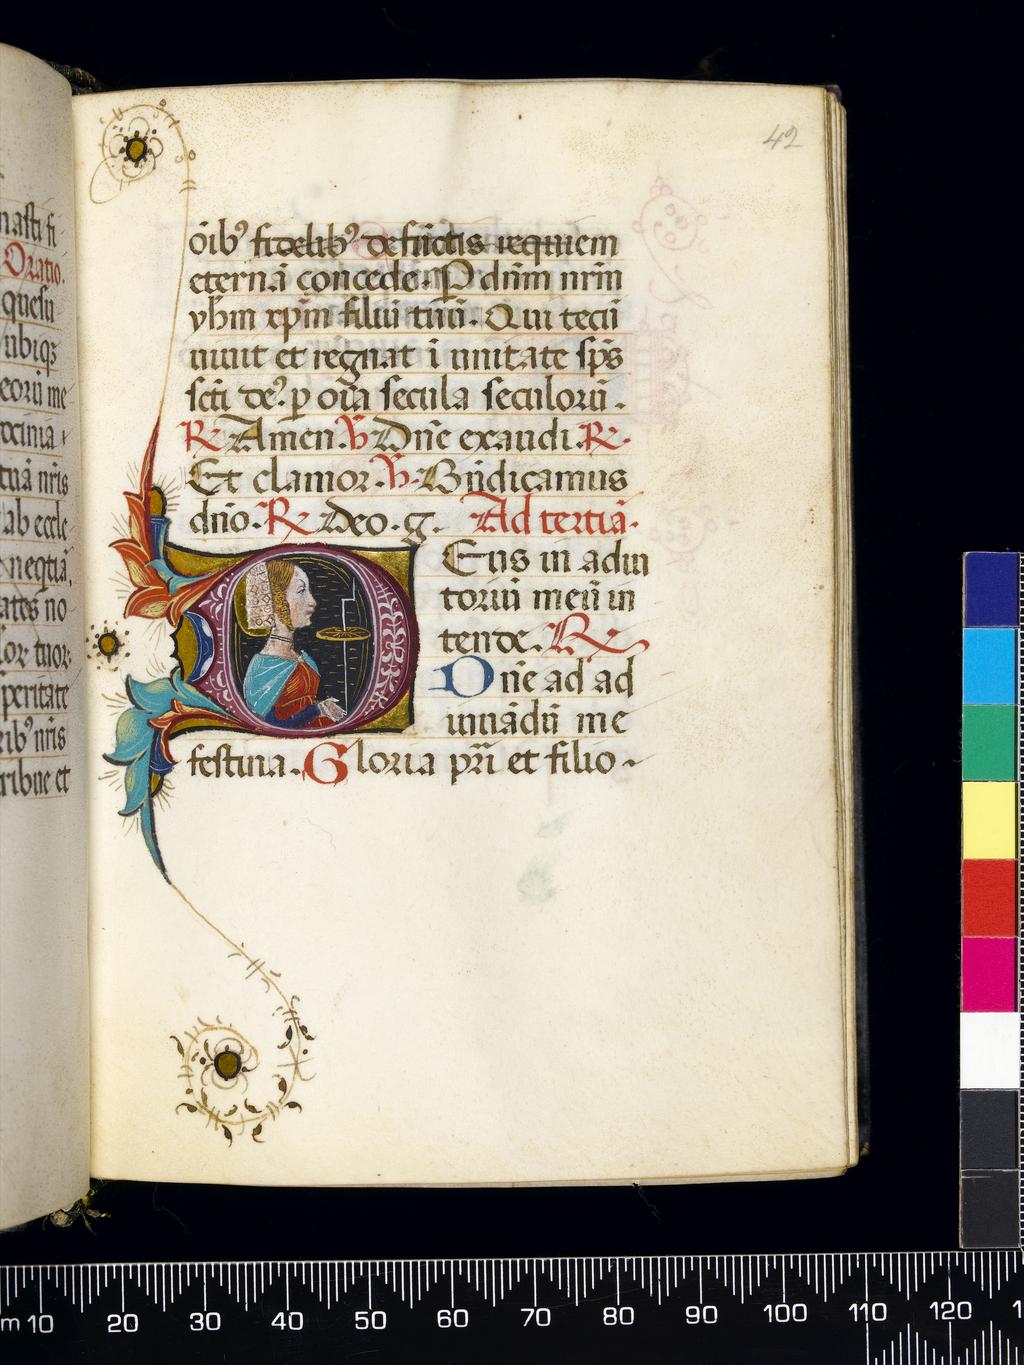 nasti fi
Oratio.
quesu
ubiqꝫ
eoru̅ me
tua̅ nr̅is
ab eccle
neqtia̅,
ates no
lor tuor
speritate
rib⁹ nr̅is
tribue et
42
o̅ib⁹ fidelib⁹ defu̅ctis requiem
eterna̅ concede. P dn̅m nr̅m
yh̅m xp̅m filiu̅ tuu̅. Qui tecu̅
uiuit et regnat i̅ unitate sp̅s
sc̅ti de⁹. p o̅ia secula seculoru̅.
R Amen. V Dn̅e exaudi. R.
Et clamor. V. Bn̅dicamus
dn̅o. R Deo. g. Ad tertia̅.
Eus in adiu
toriu̅ meu̅ in
tende. R
Dn̅e ad ad
iuua̅du̅ me
festina. Gloria pr̅i et filio.
m 10 20 30 40 50 60 70 80 90 100 110 120 1